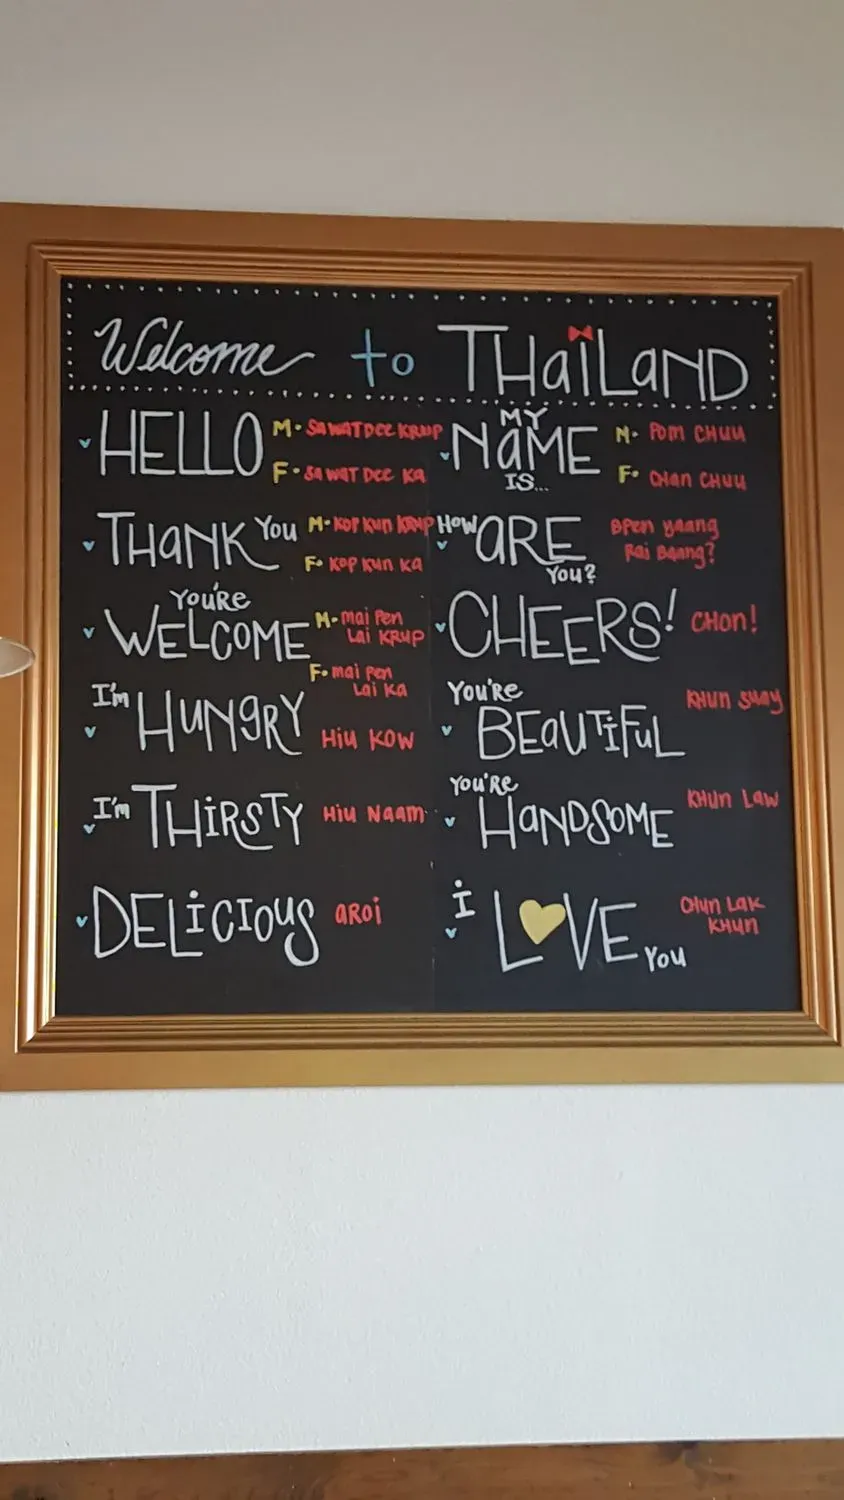 Welcome to THaiLaND
HELLO M• SaWaT Dee KRUP
F• Sa WaT Dee Ka
THaNK You M• KOP KUN KRUP
F• KOP KUN Ka
You'Re WELCOME M• mai Pen
Lai KRUP
F• mai Pen
Lai Ka
I'm HUNGRY Hiu KOW
I'm THiRSTY Hiu Naam
DELiCIOUS aROi
MY NaME IS... M• Pom CHUU
F• CHan CHUU
How aRE You? BPen yaang
Rai Baang?
CHEERS! CHon!
You'Re BEaUTiFuL KHun Suay
You'Re HaNDSOME KHun Law
i LOVE You CHun Lak
KHun